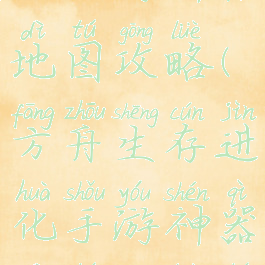 dì tú gōng lüè
地图攻略(
fāng zhōu shēng cún jìn
方舟生存进
huà shǒu yóu shén qì
化手游神器